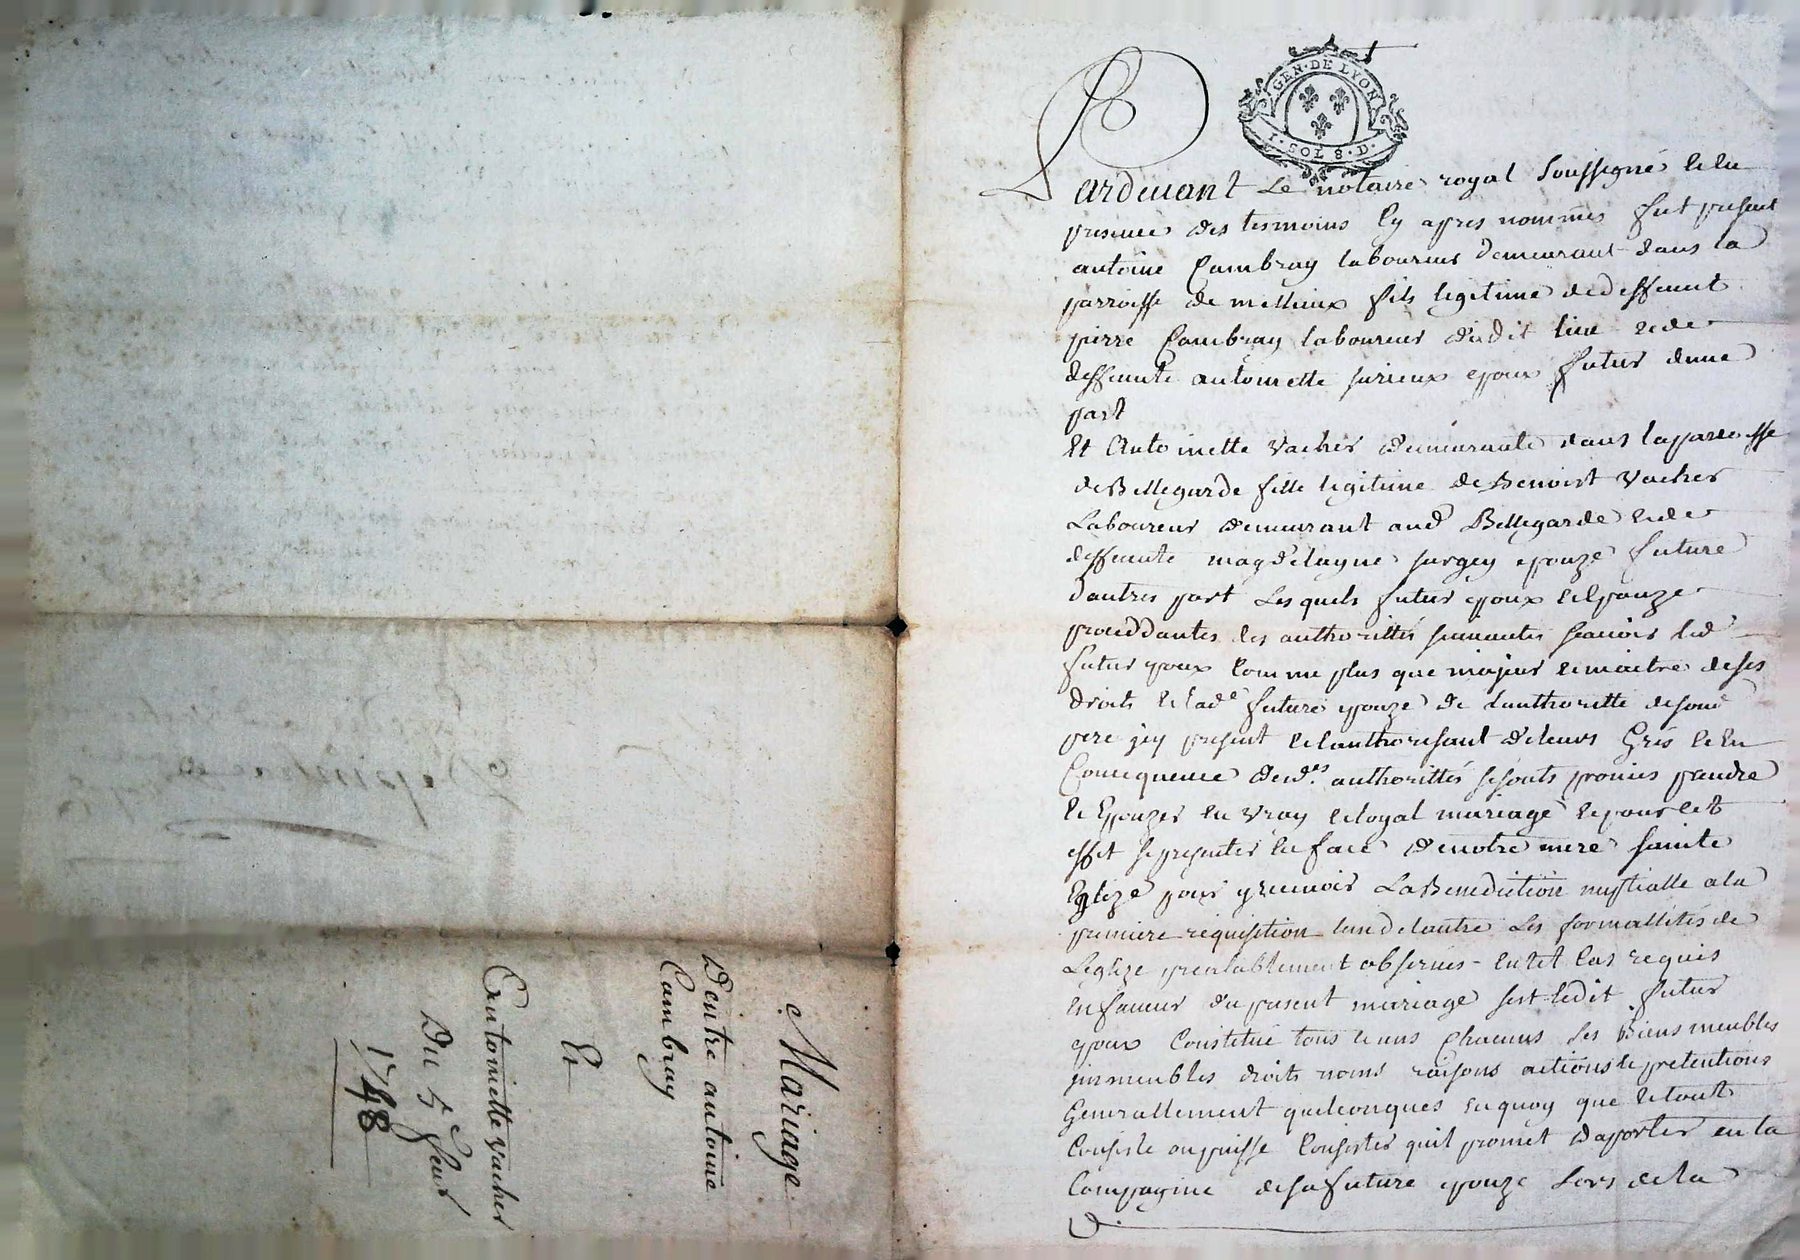 Mariage
Dentre antoine
Cambray
Et
Entoinette vacher
Du 5e feur
1748
GEN·DE LYON
1·SOL 8·D·
Pardeuant Le notaire royal soussigné Et En
presence des tesmoins Cy apres nommés fut present
antoine Cambray laboureur demeurant dans la
parroisse de fils legitime de deffeunt
pierre Cambray laboureur dudit lieu Et de
deffeunte antoinette epoux futur dune
part
Et Antoinette vacher demeurante dans la parroisse
de Bellegarde fille legitime de Benoist vacher
Laboureur demeurant aud Bellegarde Et de
deffeunte magdelayne epouze future
dautres part Les quels futur epoux Et Epouze
proceddantes des authorittés seauoir led
futur epoux Comme plus que majeur Et maitre de ses
droits Et lade future epouze de lauthoritté de sond
pere jcy present Et lauthorisant de leurs Grés Et En
Concequence desdes authorittés se sonts promis prendre
Et Epouzer En vray Et loyal mariage Et pour Cet
effet se presenter En face de notre mere sainte
Eglize pour y recevoir La Benediction nuptialle a la
premiere requisition lun de lautre Les formallités de
Leglize prealablement observés - En tel Cas requis
En faueur du present mariage sest ledit futur
epoux Constitué tous Et uns Chacuns ses Biens meubles
jmmeubles droits noms raisons actions Et pretentions
Generallement quelconques En quoy que le tout
Consiste ou puisse Consister quil promet daporter en la
Compagnie de sa future epouze Lors de la